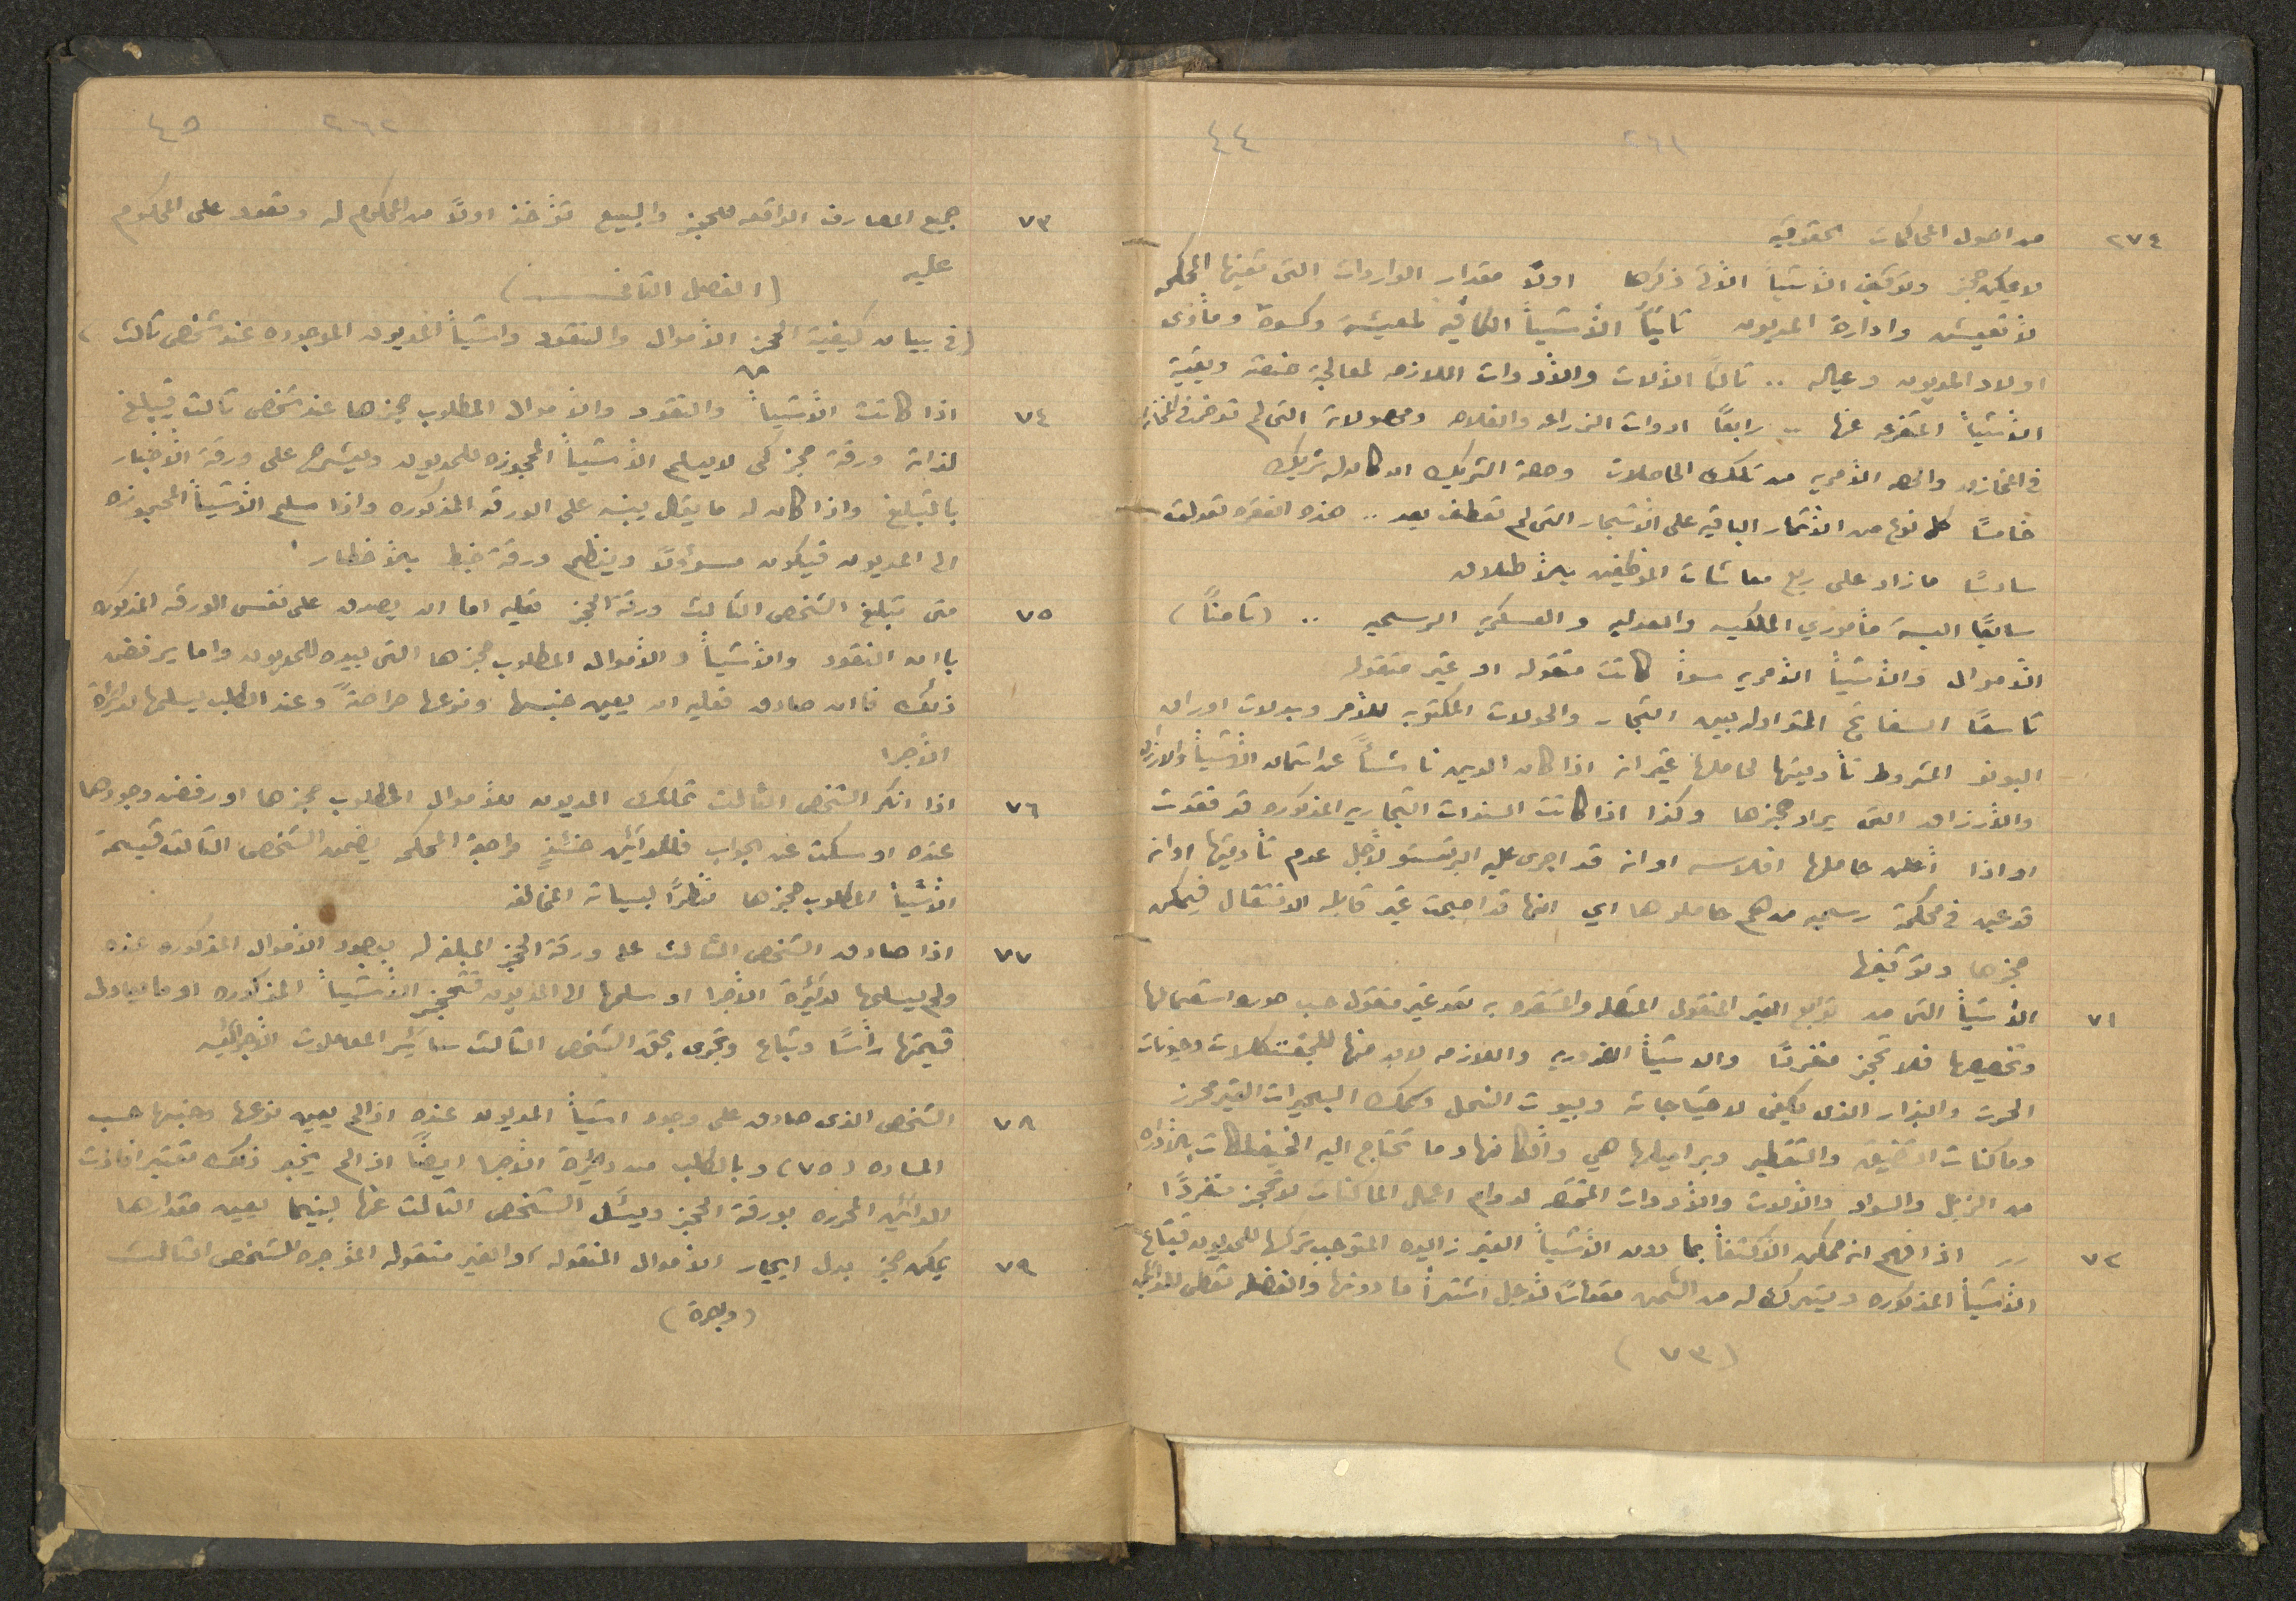 ٤٤
٢٦١
٢٧٤ من اصول المحاكمات الحقوقيه
لا يمكن حجز وتوقيف الأشيأ الأتى ذكرها اولاً مقدار الواردات التى تعينها المحكمه
لأ تعيش وادارة المديون ثانياً الأشيأ الكافيه لمعيشة وكسوة ومأوى
اولاد المديون وعياله .. ثالثاً الألات والأدوات اللازمه لمعالجة صنعته وبقية
الأشيأ المتفرعه عنها .. رابعاً ادوات الزراعه والفلاحه ومحصولاته التى لم توضع في المخازن
فى المخازن والحصه الأميريه من تلك الحاصلات وحصة الشريك ان كان له شريك
خامساً كل نوع من الأثمار الباقيه على الأشجار التى لم تقطف بعد .. هذه الفقره تعدلت
سادساً ما زاد على ربع معاشات الموظفين بالأطلاق
سابعاً البسة مأموري الملكيه والعدليه والعسكريه الرسميه .. (ثامناً)
الأموال والأشيأ الأميريه سوأ كانت منقوله او غير منقوله
تاسعاً السفاتج المتداوله بين التجار والحولات المكتوبه للأمر وبدلات اوراق
البونو المشروط تأديتها لحاملها غير انه اذا كان الدين ناشئاً عن اثمان الأشيأ والارزاق
والأرزاق التى يراد حجزها وكذا اذا كانت السندات التجاريه المذكوره قد فقدت
او اذا أعلن حاملها افلاسه او انه قد اجرى عليه البرتستو لأجل عدم تأديتها او انه
قد عين فى محكمة رسميه من هم حاملوها اي انها قد اصبحت غير قابله الانتقال فيمكن
حجزها وتوقيفها
٧١ الأشيأ التى من توابع الغير المنقول المتصله والمستقره به تعد غير منقول حسب صورة استعمالها
وتخصيصها فلا تحجز منفرداً والاشيأ الضروريه واللازمه لابد منها للجفتلكلات وحيوانات
الحرث والبذار الذى يكفى لاحتياجاته وبيوت النحل وسمك البحيرات الغير محرز
وماكنات التضيق والتقطير وبراميلها هي وألحاقها وما تحتاج اليه الجفتلكات بالأداره
من الزبل والسواد والألات والأدوات المختصه لدوام اعمال الماكنات لا تحجز منفرداً
٧٢ رر اذا فهم انه ممكن الأكتفأ بما دون الأشيأ الغير زائده المتوجب تركها للمديون فتباع
الأشيأ المذكوره ويترك له من الثمن مقداراً لأجل اشترأ ما دونها والفضله تعطى للدائن
(٧٣)
٤٥
٢٦٢
٧٣ جميع المصارف الواقعه للحجز والبيع تؤخذ اولاً من المحكوم له وتعود على المحكوم
عليه
(الفصل الثانى)
(فى بيان كيفية الحجز الأموال والنقود واشيأ المديون الموجوده عند شخص ثالث)
٧٤ اذا كانت الأشيأ والنقود والأموال المطلوب حجزها عند شخص ثالث فيبلغ
لذاته ورقة حجز لكى لا يسلم الأشيأ المحجوزه للمديون ويشرح على ورقة الأخبار
بالتبليغ واذا كان له ما يقال يبينه على الورقه المذكوره واذا سلم الأشيأ المحجوزه
الى المديون فيكون مسؤولاً وينظم ورقة ضبط بالأخطار
٧٥ متى تبلغ الشخص الثالث ورقة الحجز فعليه اما ان يصدق على نفس الورقه المذكوره
با ان النقود والأشيأ والأموال المطلوب حجزها التى بيده للمديون واما يرفض
ذلك فا ان صادق فعليه ان يعين جنسها ونوعها صراحةً وعند الطلب يسلمها لدائرة
الأجرا
٧٦ اذا انكر الشخص الثالث تملك المديون للأموال المطلوب حجزها او رفض وجودها
عنده او سكت عن الجواب فللدائن حنئذٍ مراجعة المحكمه يضمن الشخص الثالث قيمة
الأشيأ المطلوب حجزها نظراً لبياته المخالفه
٧٧ اذا صادق الشخص الثالث على ورقة الحجز المبلغه له بوجود الأموال المذكوره عنده
ولم يسلمها لدائرة الأجرا او سلمها الى المديون فتحجز الأشيأ المذكوره او ما يعادل
قيمتها رأساً وتباع وتجرى بحق الشخص الثالث سائر المعاملات الأجرائيه
٧٨ الشخص الذى صادق على وجود اشيأ المديون عنده اذا لم يعين نوعها وجنسها حسب
الماده (٧٥) وبالطلب من دائرة الأجرا ايضاً اذا لم يخبر ذلك تعتبر افادت
الدائن المحرره بورقة الحجز ويسئل الشخص الثالث عنها بينما يعين مقدارها
٧٩ يمكن حجز بدل ايجار الأموال المنقوله او الغير منقوله المؤجره للشخص الثالث
(وبصرة)